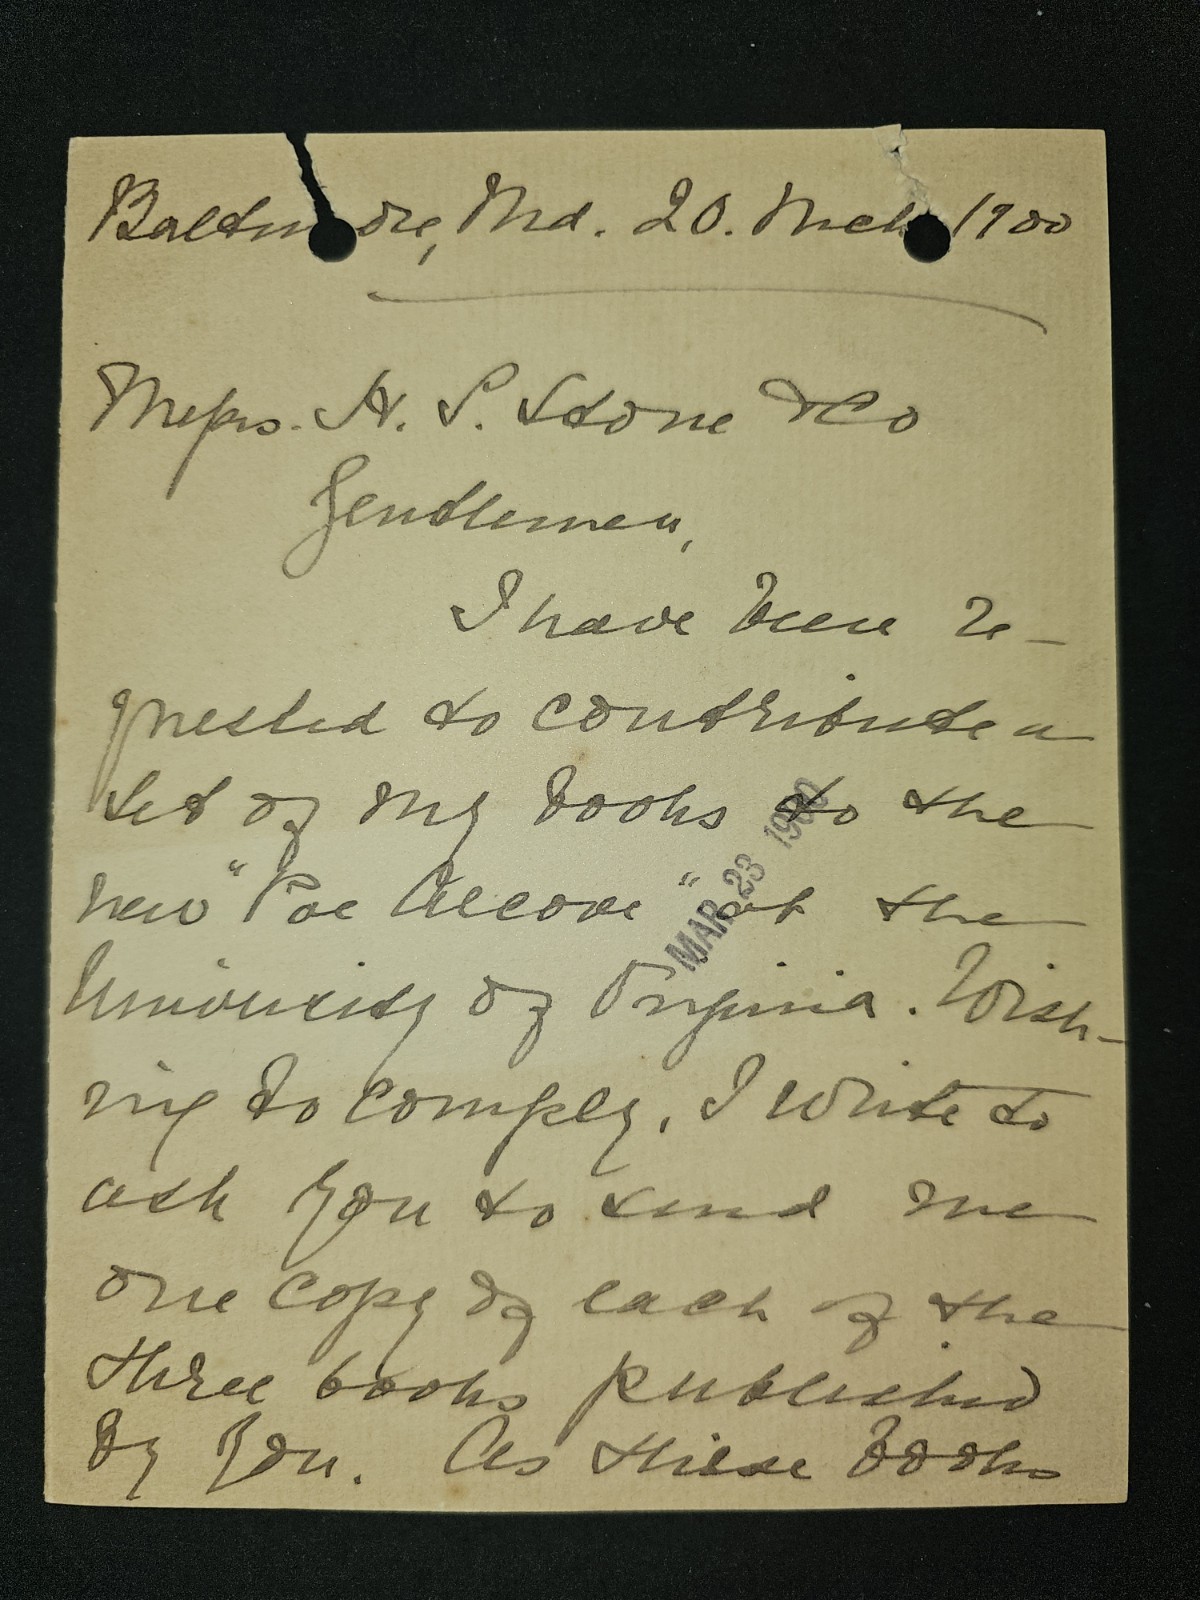 Baltimore, Md. 20. Mch 1900
Messrs. H. S. Stone & Co
Gentlemen,
I have been re-
quested to contribute a
set of my books to the
new "Poe Alcove" at the
MAR 23 1900
University of Virginia. Wish-
ing to comply, I write to
ask you to send me
one copy of each of the
three books published
by you. As these books